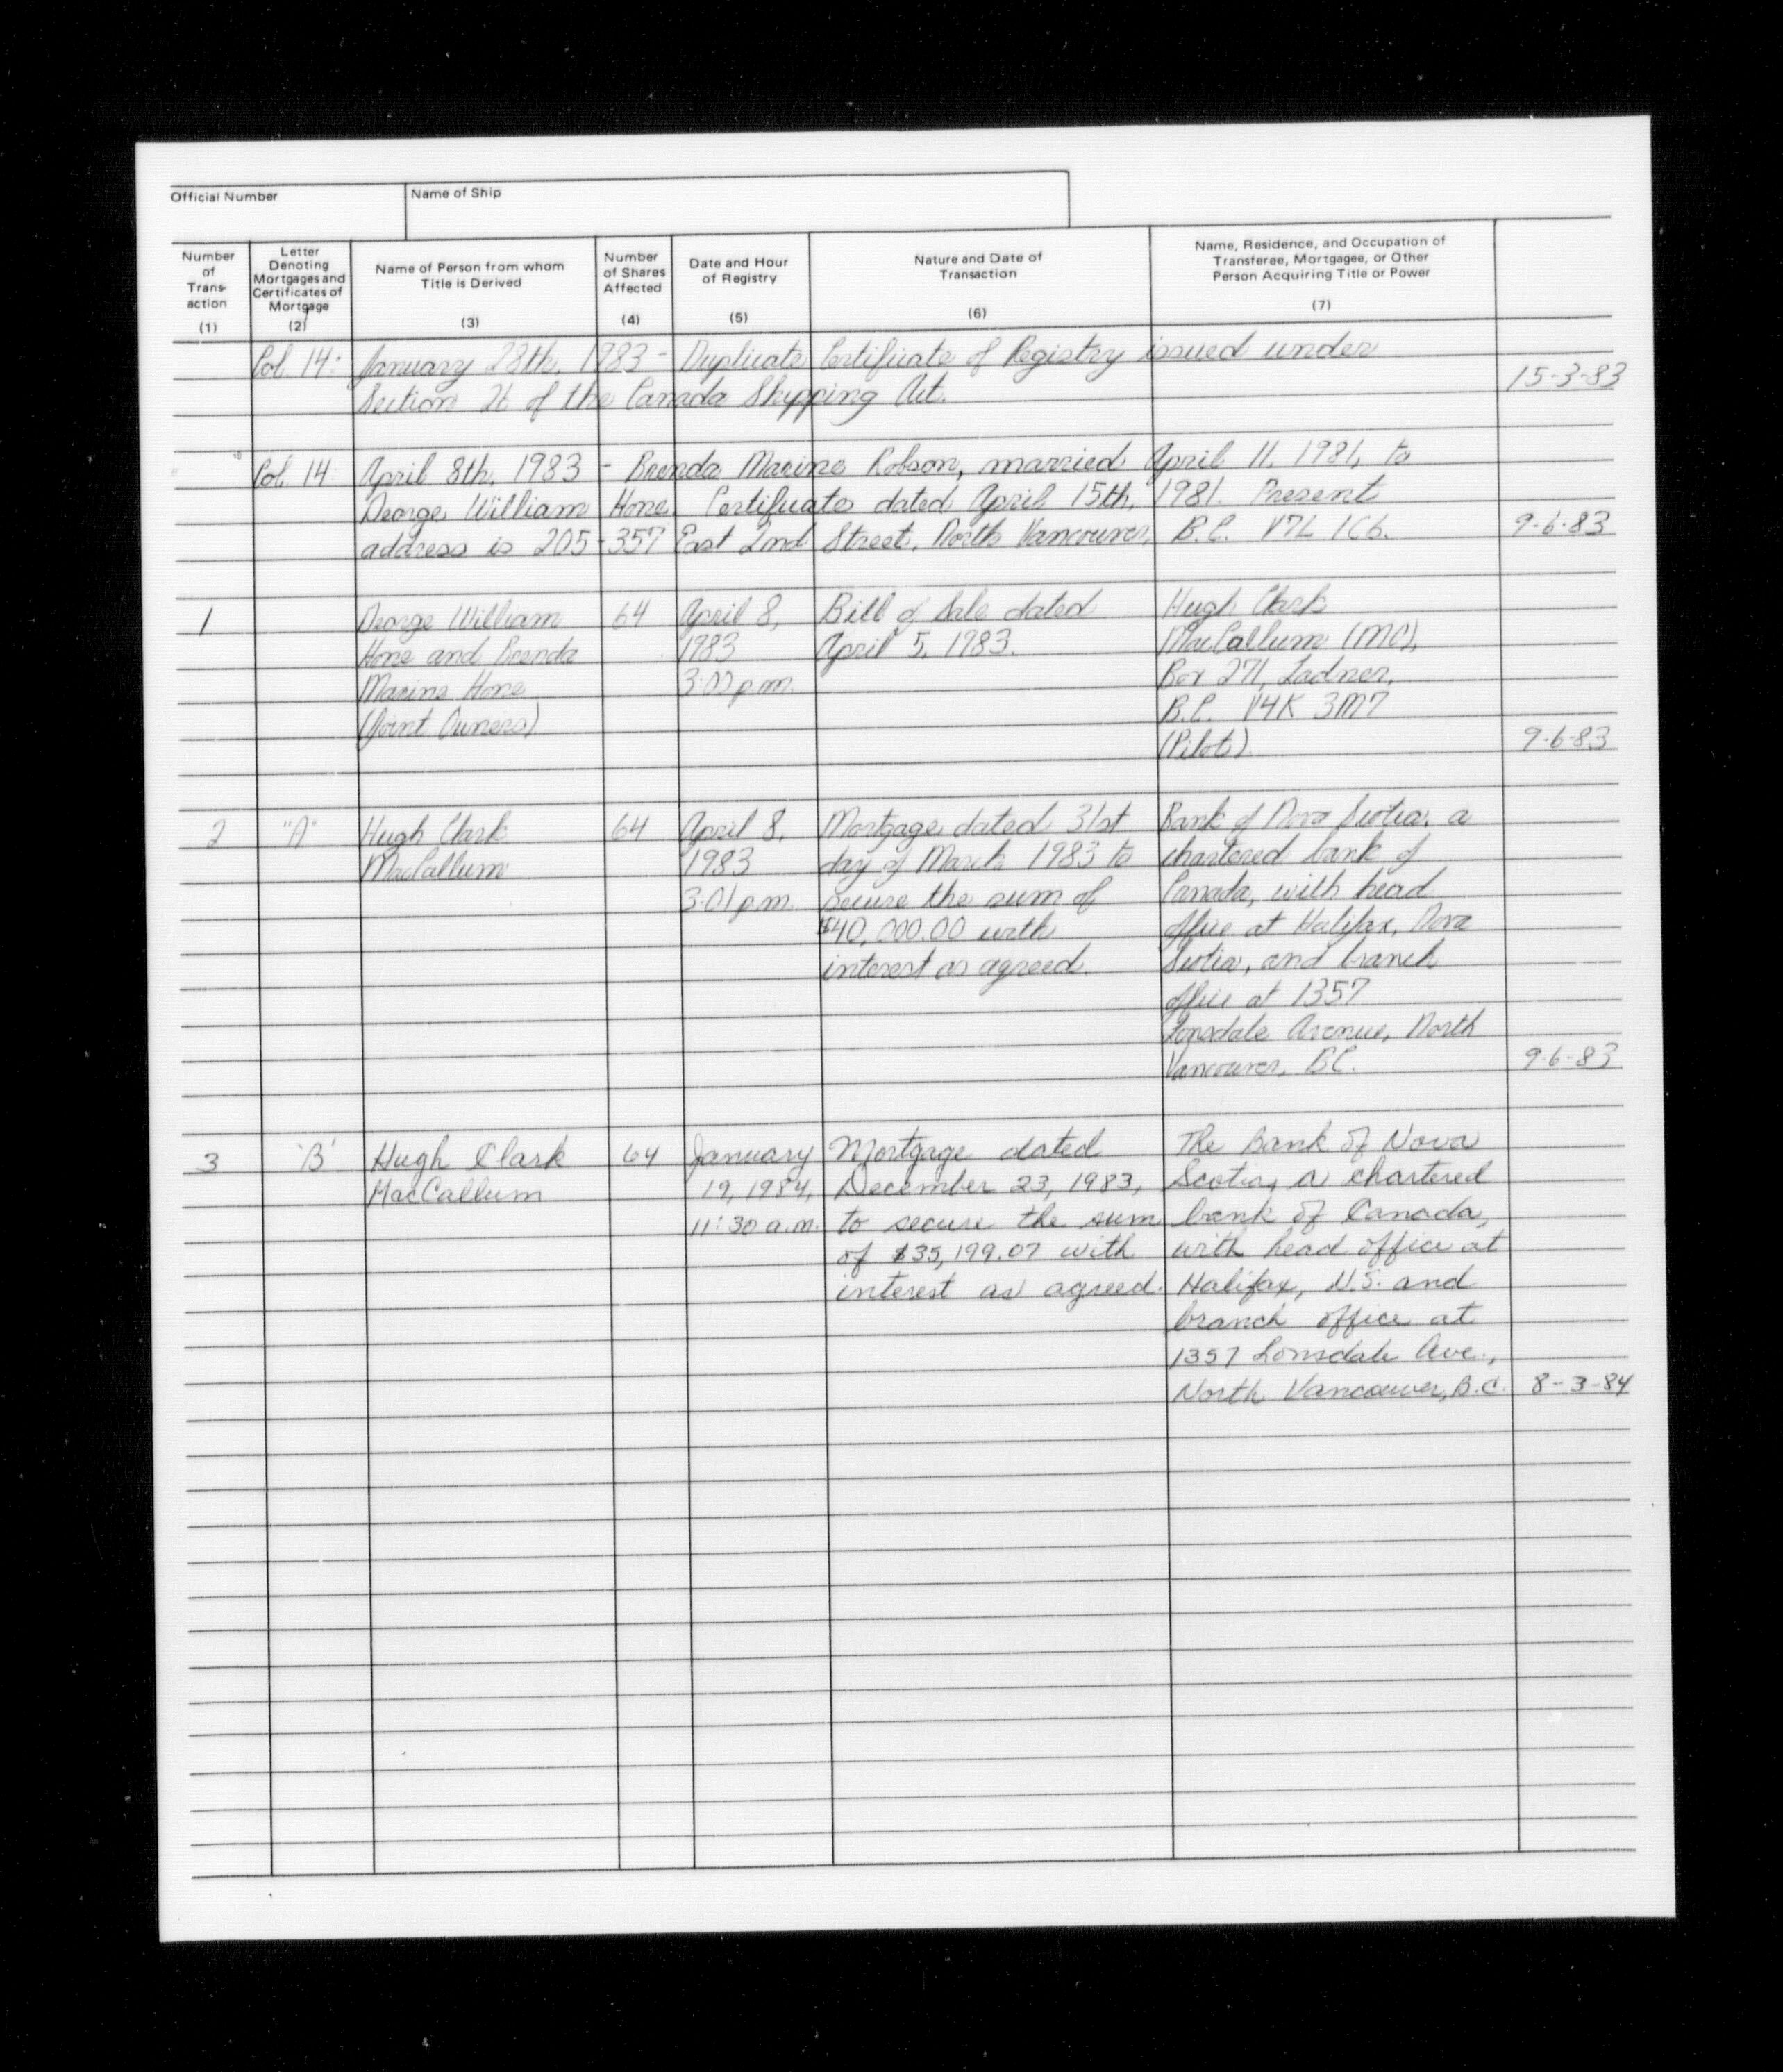 Official Number
Name of Ship
Number of Trans- action (1)
Letter Denoting Mortgages and Certificates of Mortgage (2)
Name of Person from whom Title is Derived (3)
Number of Shares Affected (4)
Date and Hour of Registry (5)
Nature and Date of Transaction (6)
Name, Residence, and Occupation of Transferee, Mortgagee, or Other Person Acquiring Title or Power (7)
Fol. 14: January 28th, 1983 - Duplicate Certificate of Registry issued under
Section 26 of the Canada Shipping Act. 15-3-83
Fol. 14 April 8th, 1983 - Brenda Maxine Robson, married April 11, 1981, to
George William Hone. Certificate dated April 15th, 1981. Present
address is 205-357 East 2nd Street, North Vancouver, B.C. V7L 1C6. 9-6-83
1 George William 64 April 8, Bill of Sale dated Hugh Clark
Hone and Brenda 1983 April 5, 1983. MacCallum (MC),
Maxine Hone 3:00 p.m. Box 271, Ladner,
(Joint Owners) B.C. V4K 3M7
(Pilot). 9-6-83
2 "A" Hugh Clark 64 April 8, Mortgage dated 31st Bank of Nova Scotia, a
MacCallum 1983 day of March 1983 to chartered bank of
3:01 p.m. secure the sum of Canada, with head
$40,000.00 with office at Halifax, Nova
interest as agreed. Scotia, and branch
office at 1357
Lonsdale Avenue, North
Vancouver, BC. 9-6-83
3 'B' Hugh Clark 64 January Mortgage dated The Bank of Nova
MacCallum 19, 1984, December 23, 1983, Scotia, a chartered
11:30 a.m. to secure the sum bank of Canada,
of $35,199.07 with with head office at
interest as agreed. Halifax, N.S. and
branch office at
1357 Lonsdale Ave.,
North Vancouver, B.C. 8-3-84